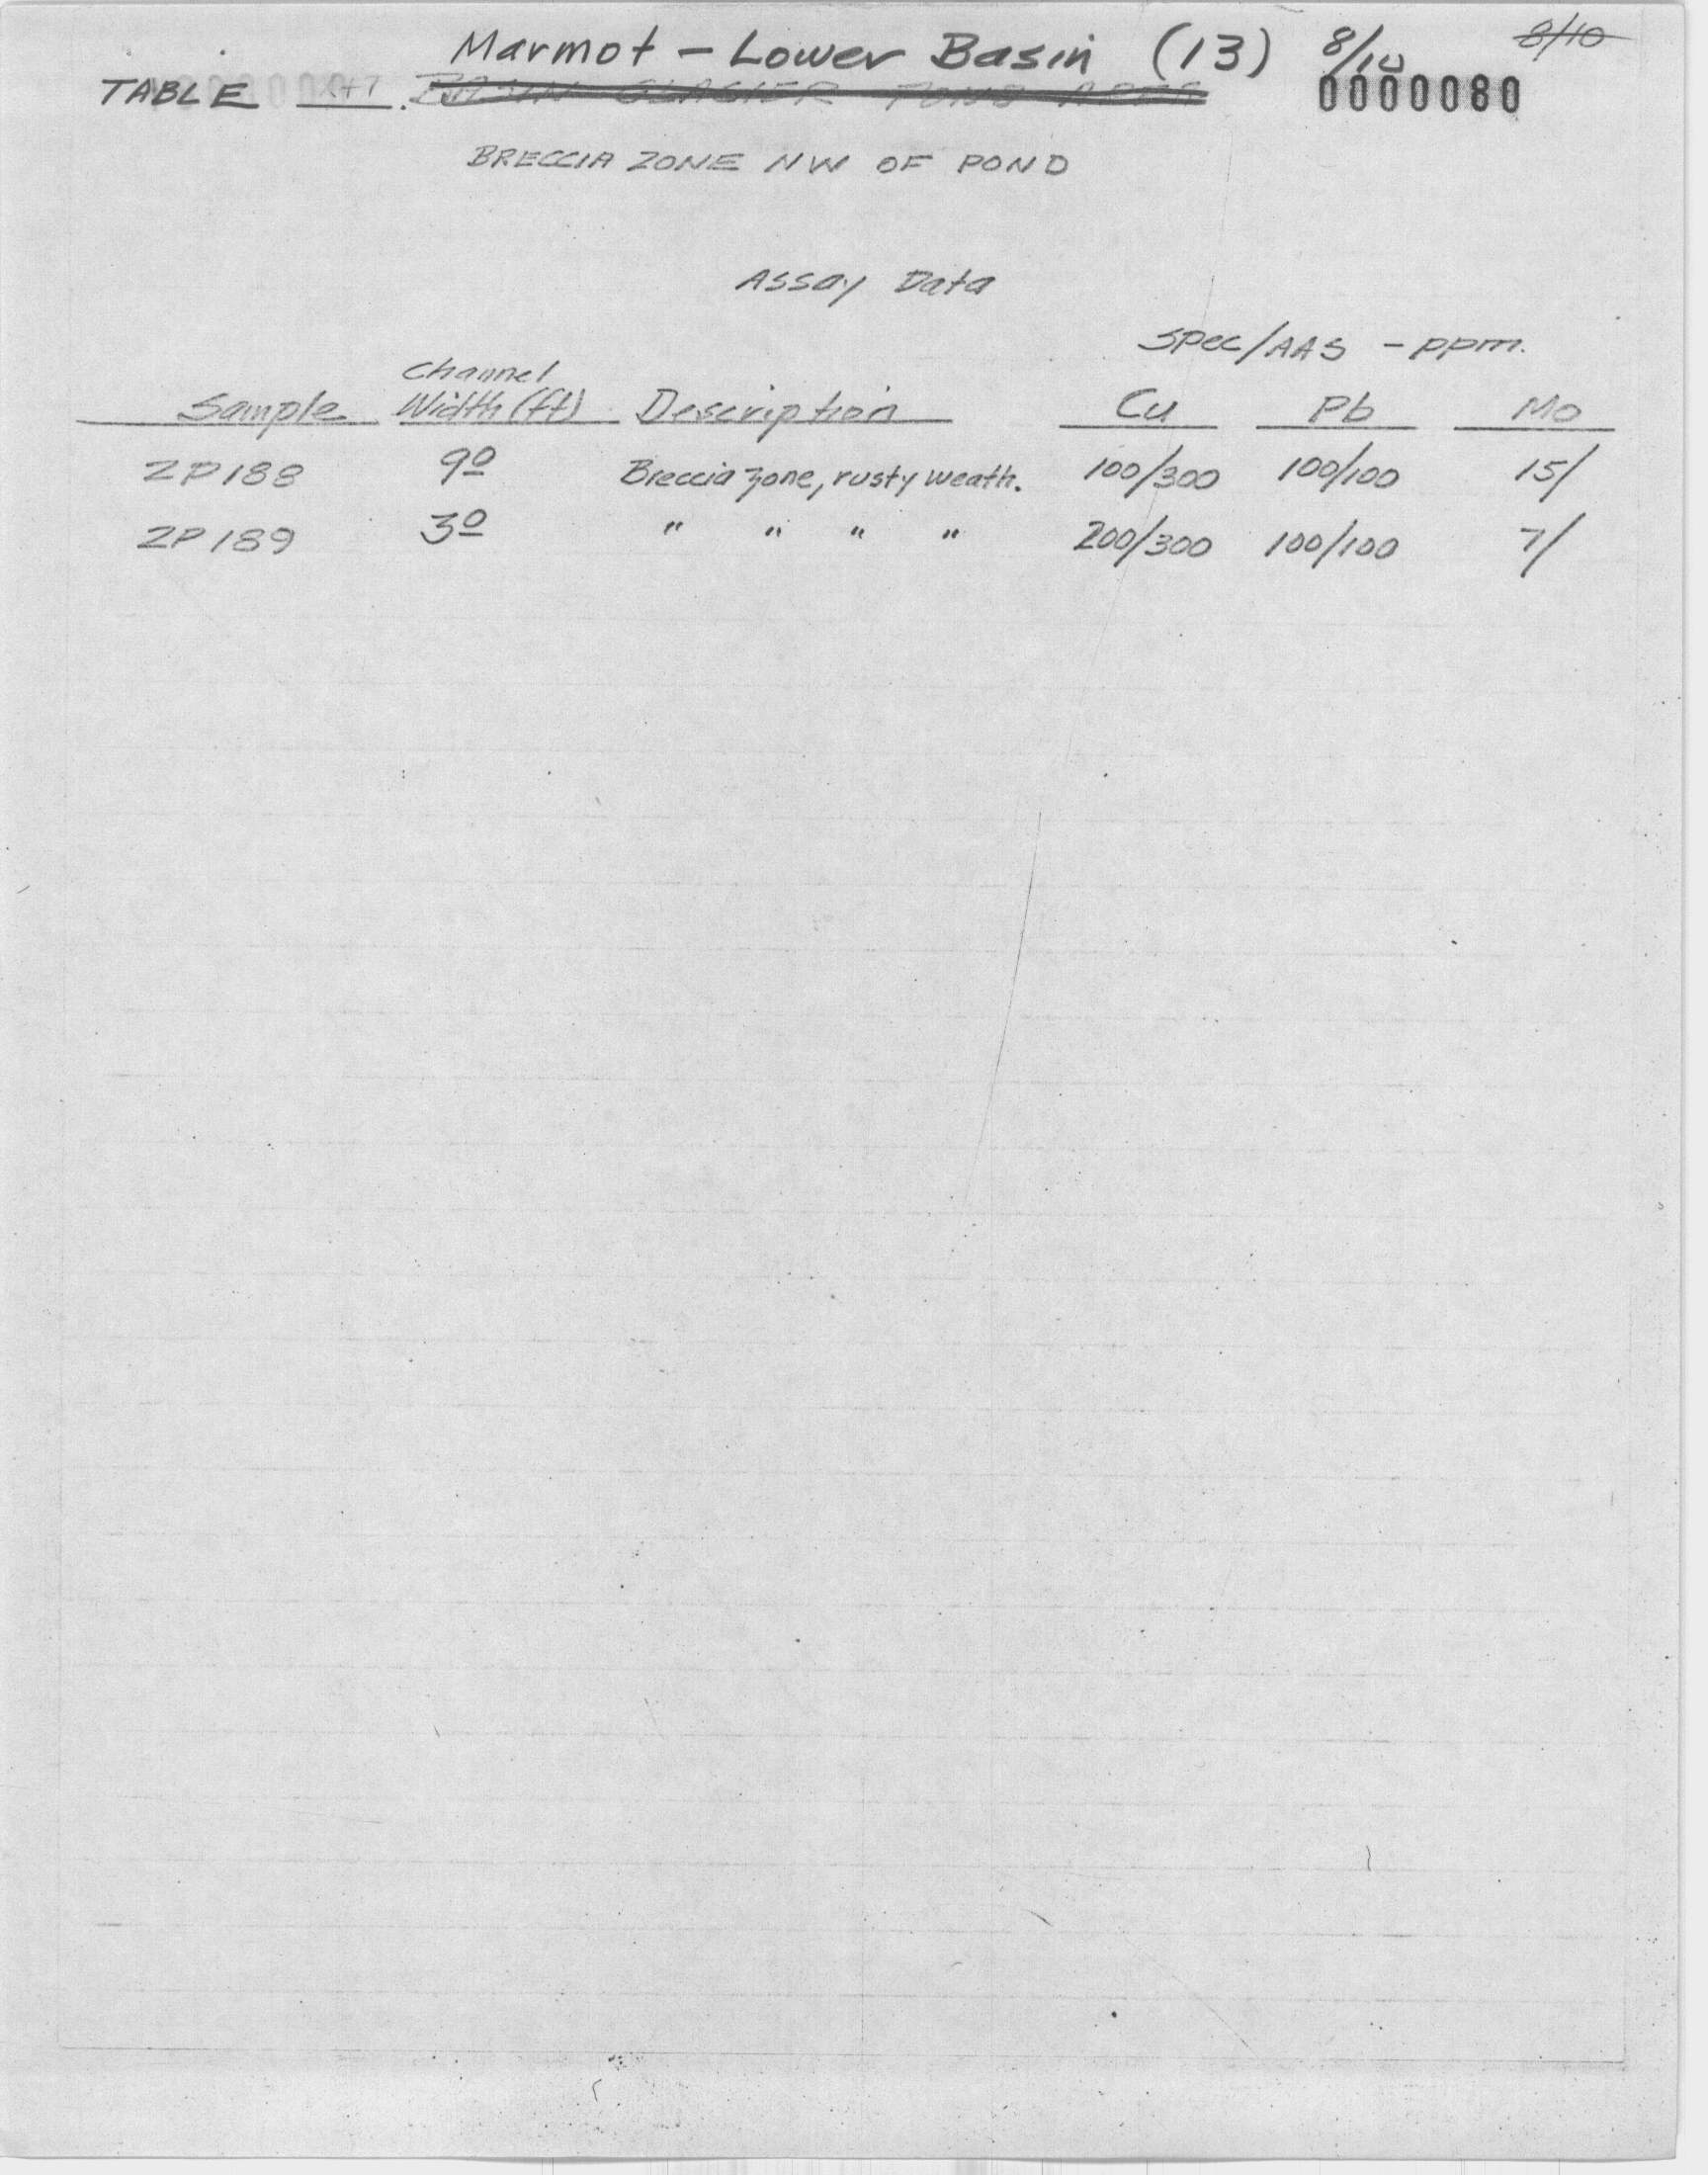 Marmot - Lower Basin (13) 8/10 8/10
TABLE ____. BASIN GLACIER POND AREA 0000080
BRECCIA ZONE NW OF POND
Assay Data
Spec/AAS - ppm.
Channel
Sample Width (ft) Description Cu Pb Mo
ZP188 9⁰ Breccia zone, rusty weath. 100/300 100/100 15/
ZP189 3⁰ " " " " 200/300 100/100 7/